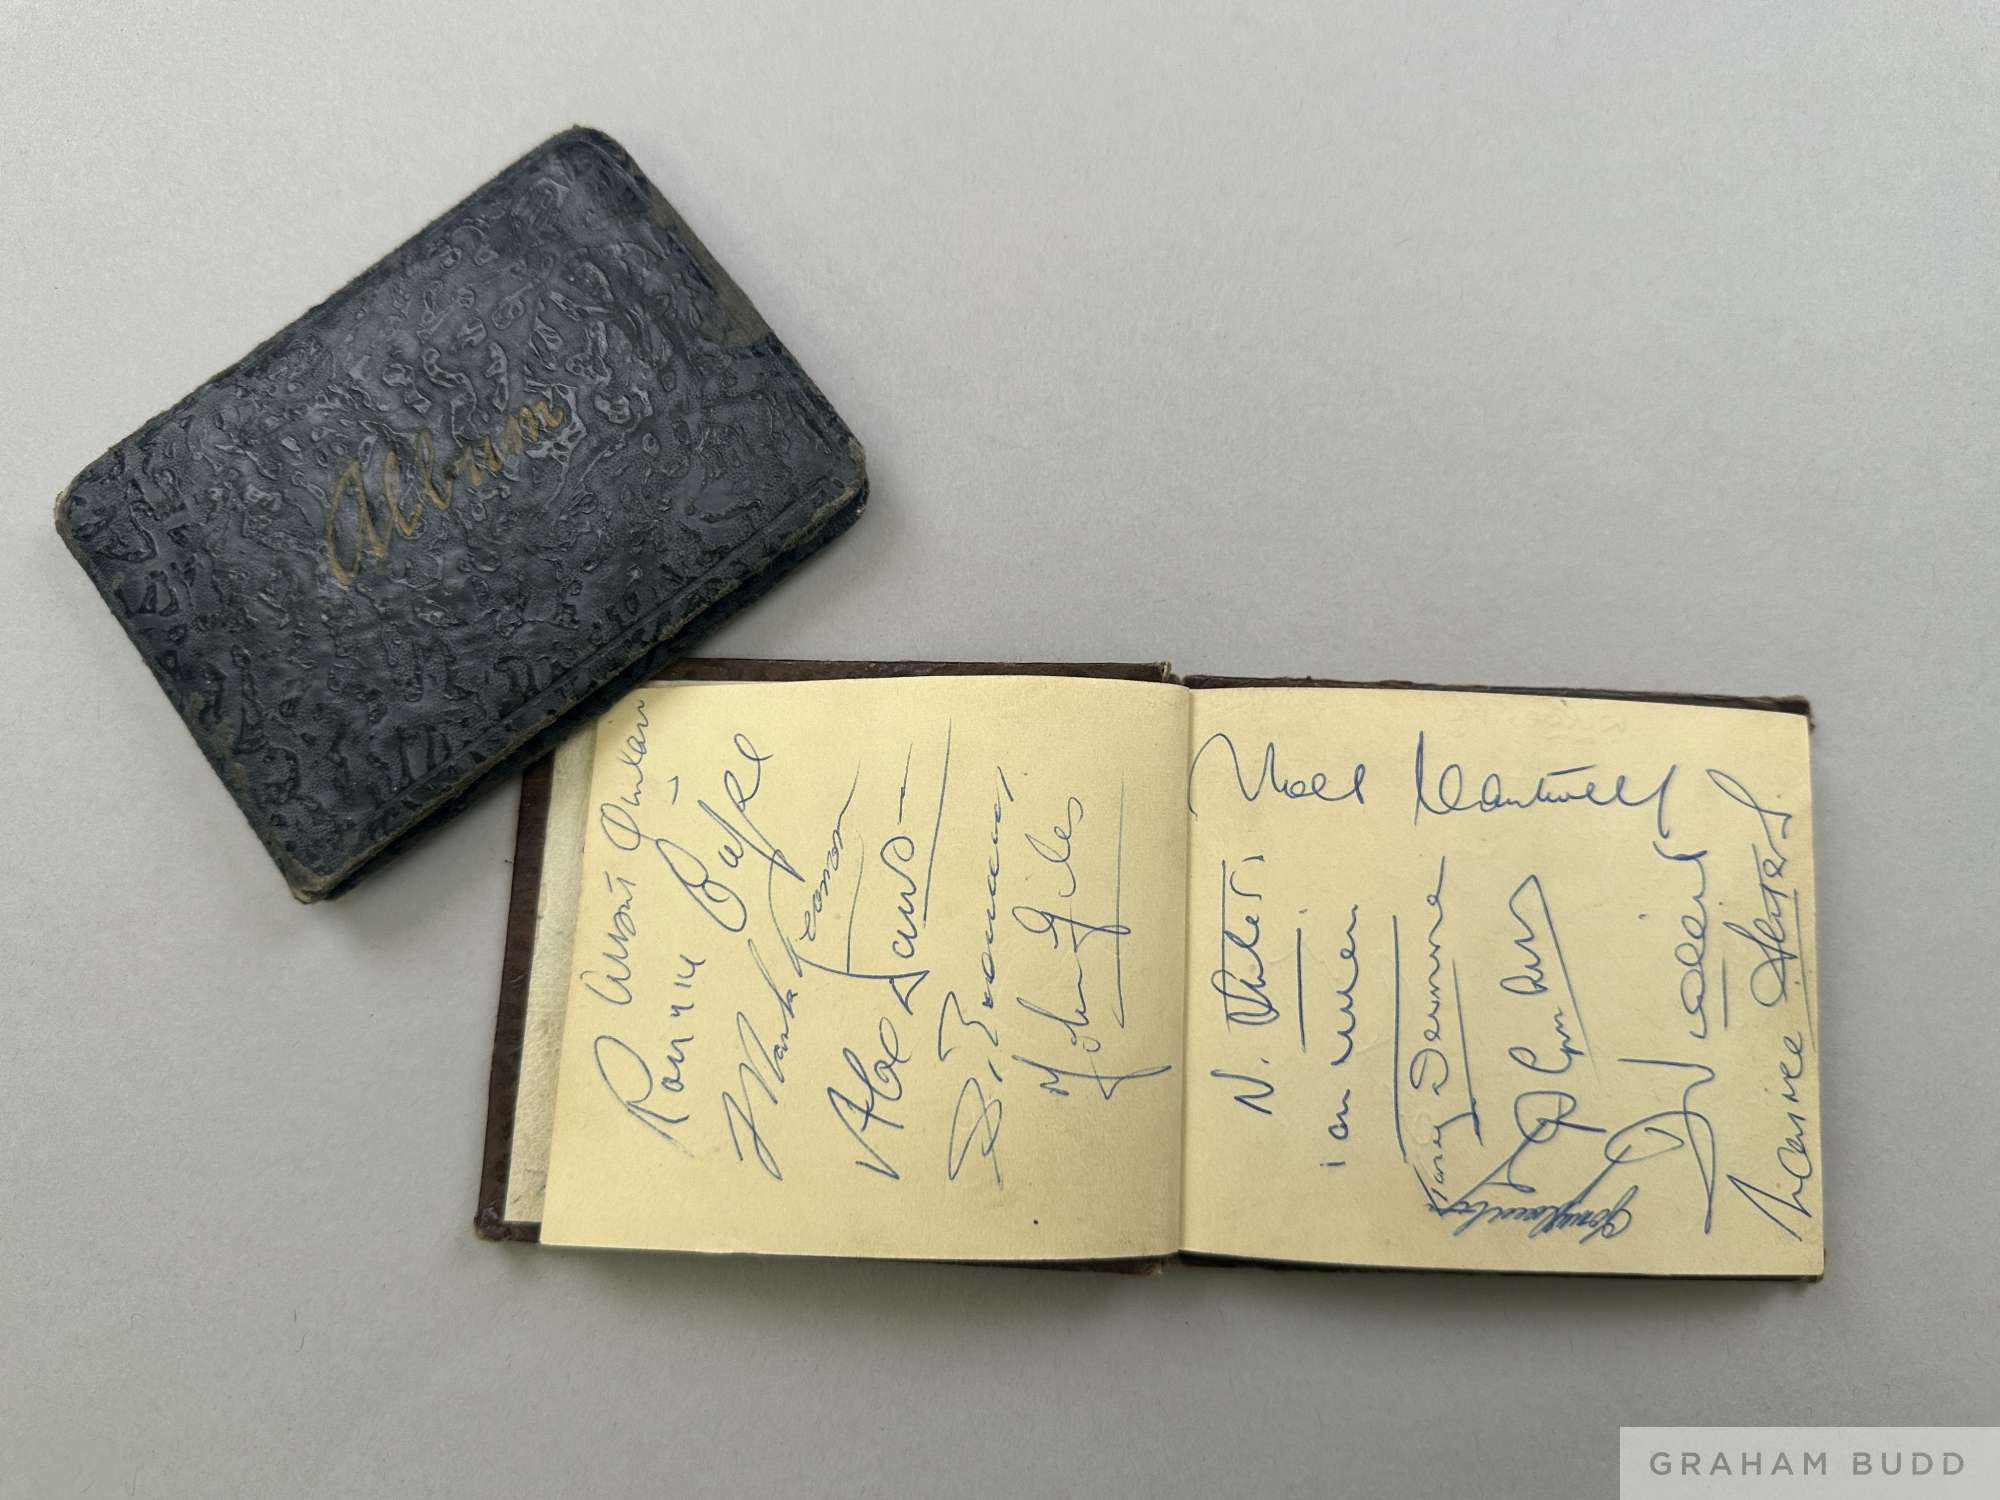 Album
Albert Quixall
Ronnie Cope
Mark Pearson
Alex Dawson
S. Brennan
John Giles
Noel Cantwell
N. Stiles
ian Muir
Tony Dunne
D. Law
D Viollet
Maurice Setters.
GRAHAM BUDD